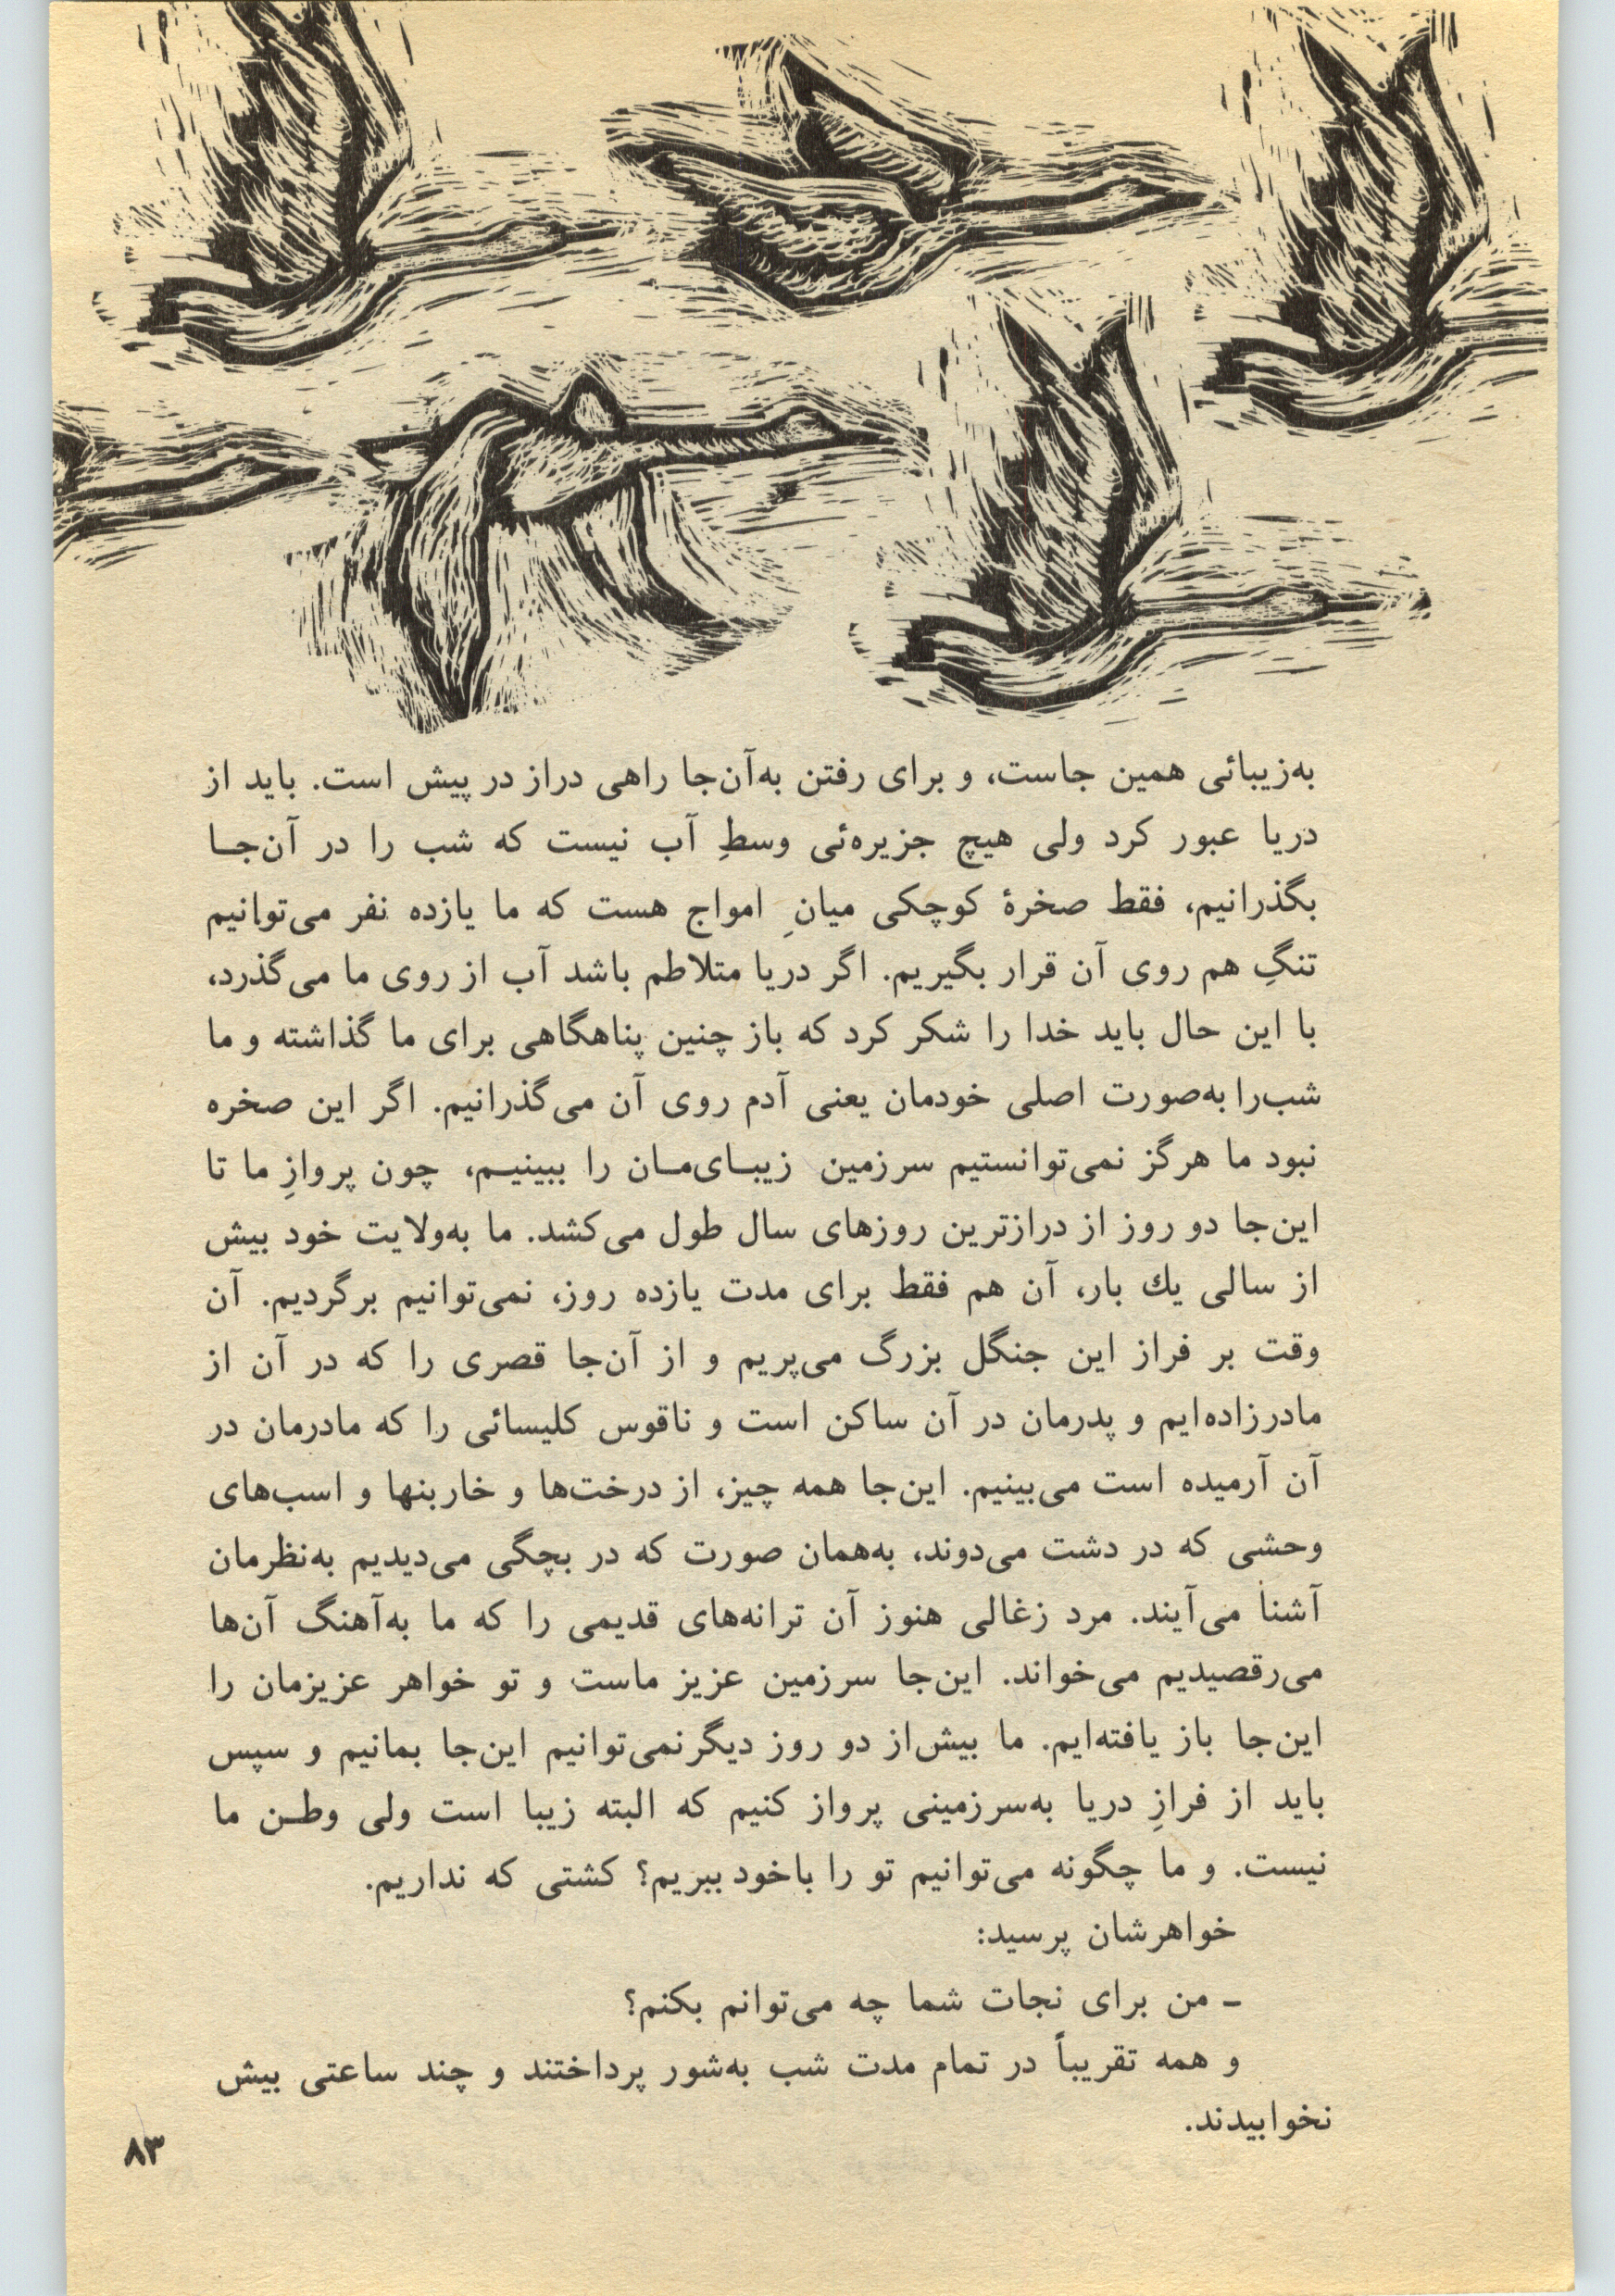 به‌زیبائی همین جاست، و برای رفتن به‌آن‌جا راهی دراز در پیش است. باید از
دریا عبور کرد ولی هیچ جزیره‌ئی وسطِ آب نیست که شب را در آن‌جا
بگذرانیم، فقط صخرهٔ کوچکی میانِ امواج هست که ما یازده نفر می‌توانیم
تنگِ هم روی آن قرار بگیریم. اگر دریا متلاطم باشد آب از روی ما می‌گذرد،
با این حال باید خدا را شکر کرد که باز چنین پناهگاهی برای ما گذاشته و ما
شب‌را به‌صورت اصلی خودمان یعنی آدم روی آن می‌گذرانیم. اگر این صخره
نبود ما هرگز نمی‌توانستیم سرزمین زیبای‌مان را ببینیم، چون پروازِ ما تا
این‌جا دو روز از درازترین روزهای سال طول می‌کشد. ما به‌ولایت خود بیش
از سالی یك بار، آن هم فقط برای مدت یازده روز، نمی‌توانیم برگردیم. آن
وقت بر فراز این جنگل بزرگ می‌پریم و از آن‌جا قصری را که در آن از
مادرزاده‌ایم و پدرمان در آن ساکن است و ناقوس کلیسائی را که مادرمان در
آن آرمیده است می‌بینیم. این‌جا همه چیز، از درخت‌ها و خاربنها و اسب‌های
وحشی که در دشت می‌دوند، به‌همان صورت که در بچگی می‌دیدیم به‌نظرمان
آشنا می‌آیند. مرد زغالی هنوز آن ترانه‌های قدیمی را که ما به‌آهنگ آن‌ها
می‌رقصیدیم می‌خواند. این‌جا سرزمین عزیز ماست و تو خواهر عزیزمان را
این‌جا باز یافته‌ایم. ما بیش‌از دو روز دیگر نمی‌توانیم این‌جا بمانیم و سپس
باید از فرازِ دریا به‌سرزمینی پرواز کنیم که البته زیبا است ولی وطن ما
نیست. و ما چگونه می‌توانیم تو را باخود ببریم؟ کشتی که نداریم.
خواهرشان پرسید:
ـ من برای نجات شما چه می‌توانم بکنم؟
و همه تقریباً در تمام مدت شب به‌شور پرداختند و چند ساعتی بیش
نخوابیدند.
۸۳